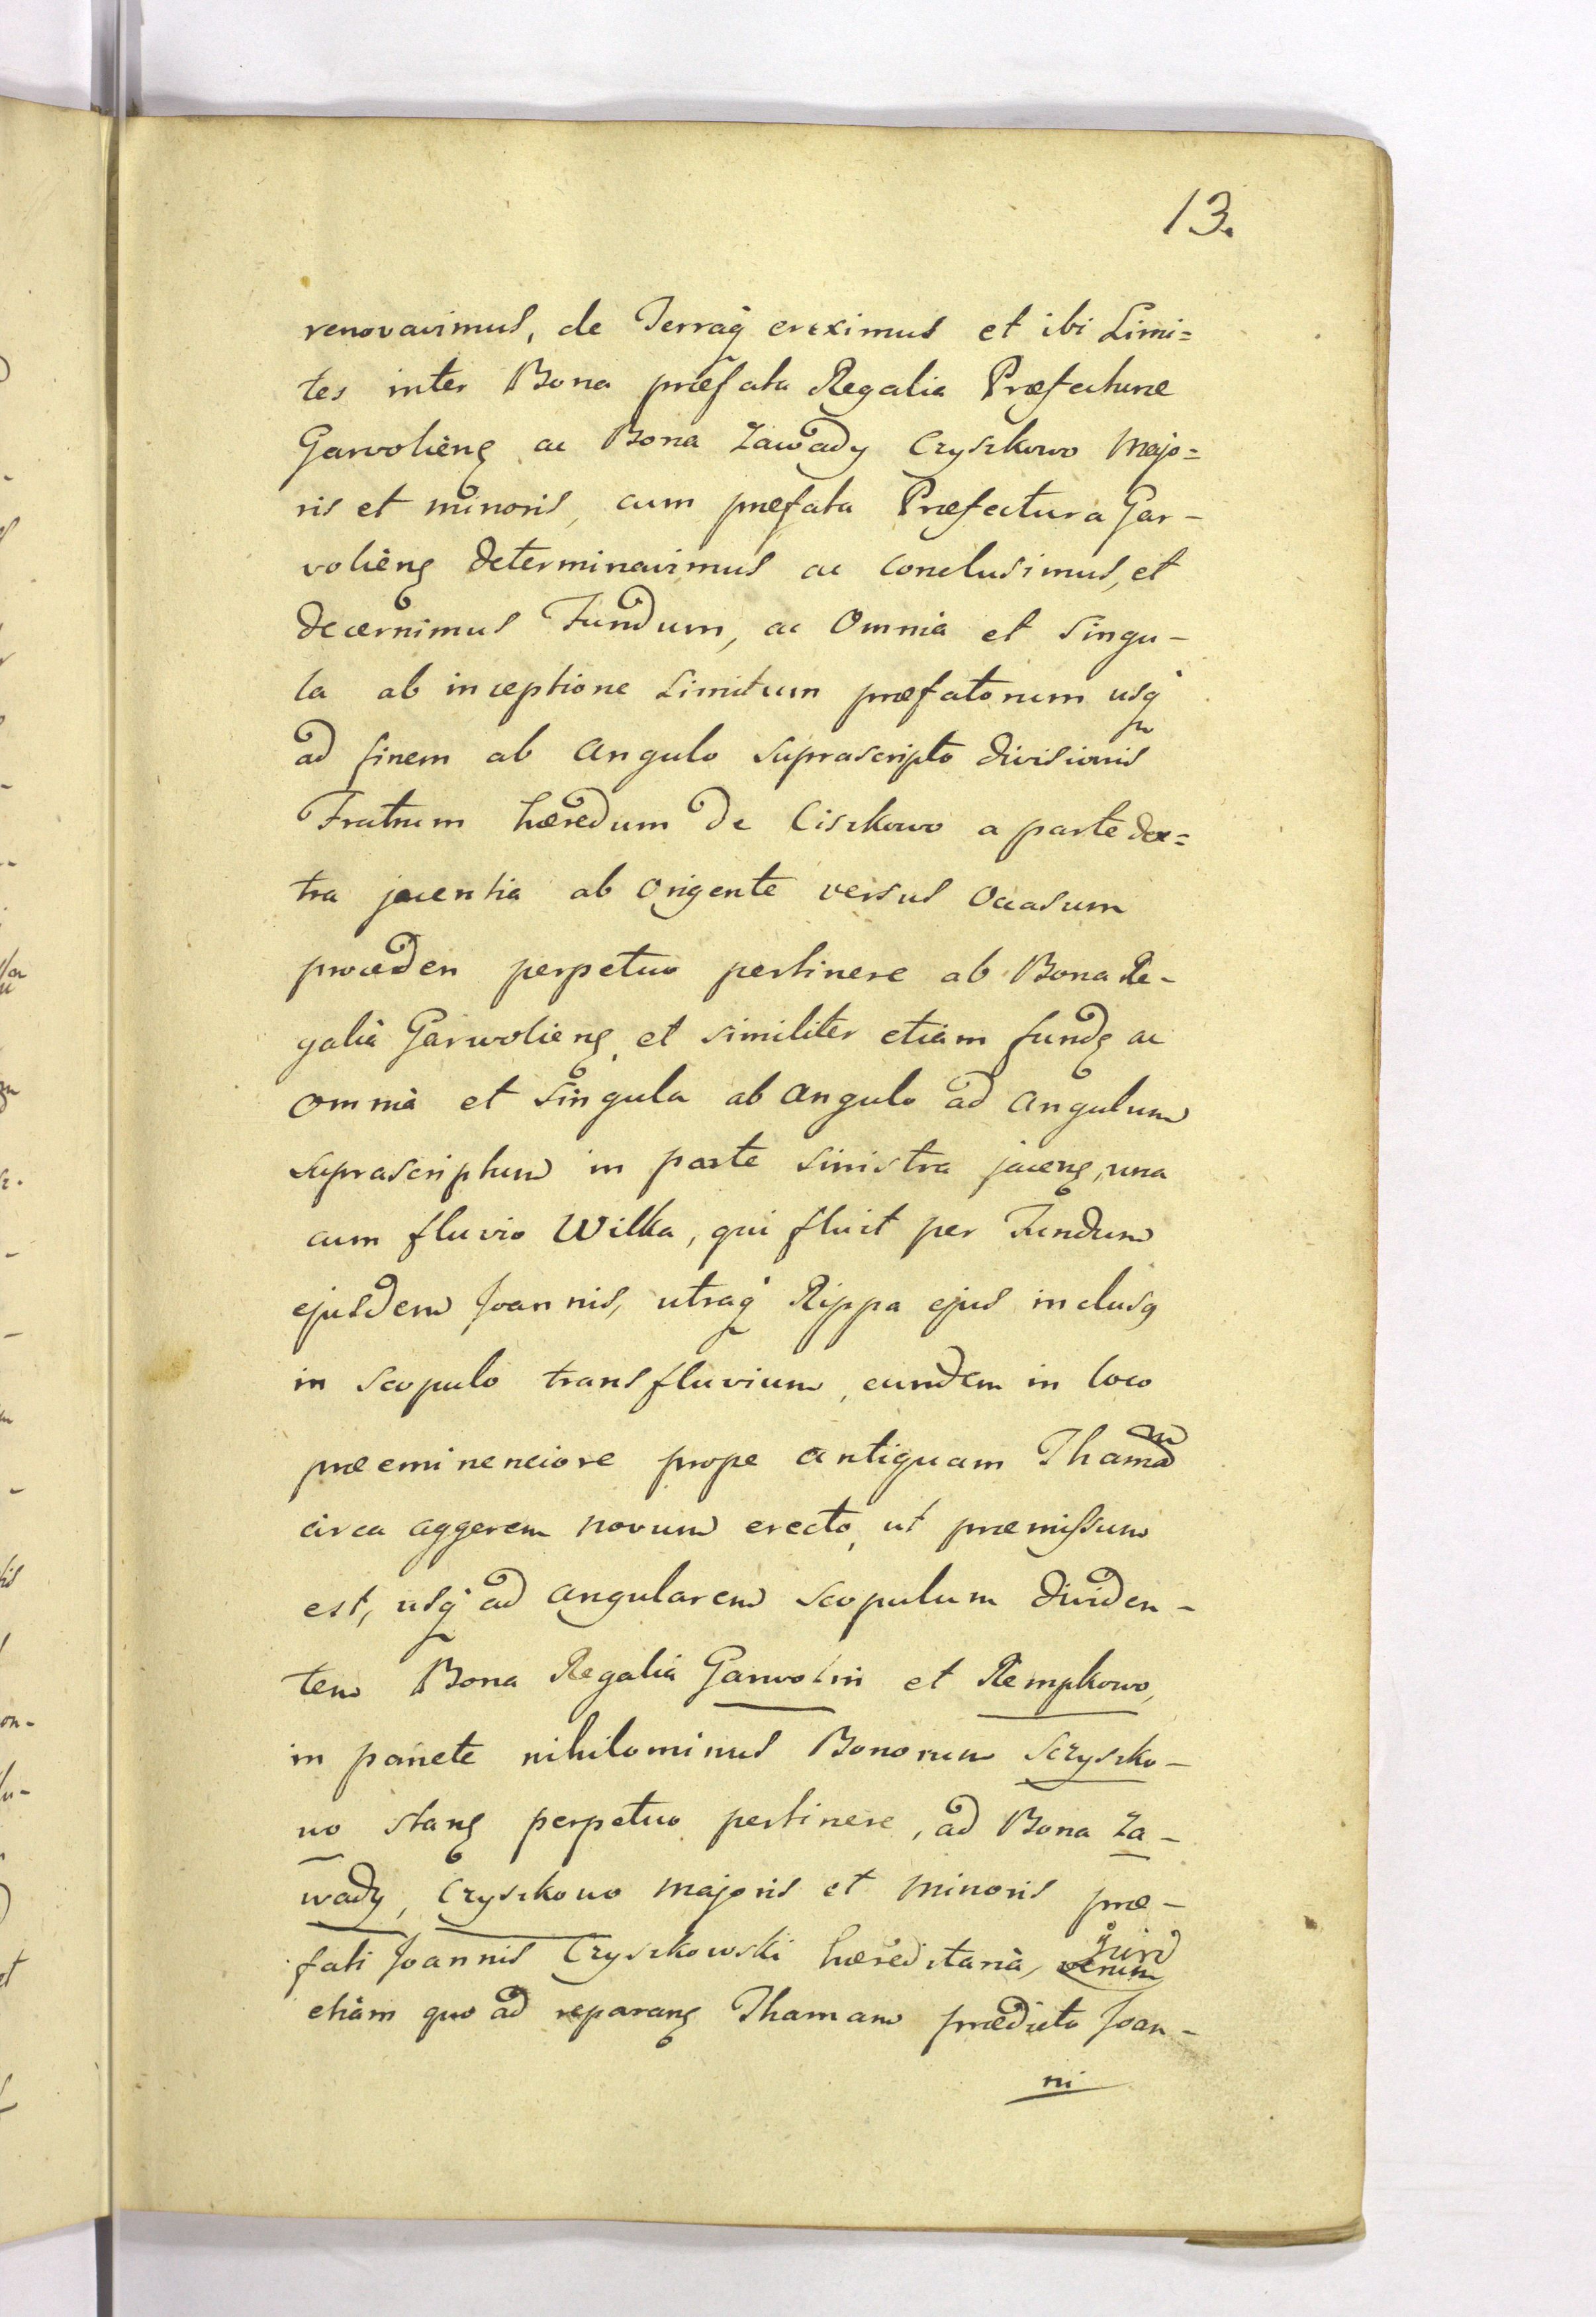 13.
renovavimus, de Terraq́ ereximus et ibi Limi=
tes inter Bona præfata Regalia Præfecturæ
Garvolieng ac Bona Zawady Czyszkowo Majo=
ris et minoris, cum præfata Præfectura Gar-
volieng determinavimus ac conclusimus, et
decernimus Fundum, ac Omnia et singu-
la ab inceptione Limitum præfatorum usq́
ad finem ab Angulo suprascripto divisionis
Fratrum hæredum de Ciszkowo a parte dex=
tra jacentia ab Origente versus Occasum
proceden perpetuo pertinere ab Bona Re-
galia Garwolieng, et similiter etiam fundg ac
Omnia et singula ab Angulo ad Angulum
suprascriptum in parte sinistra jaceng, una
cum fluvio Wilka, qui fluit per Fundum
ejusdem Joannis, utraq́ Rippa ejus inclusa
in scopulo trans fluvium, eundem in loco
præeminenciore prope antiquam Thamam
circa aggerem novum erecto, ut præmissum
est, usq́ ad angularem scopulum dividen-
tem Bona Regalia Garwolin et Rempkowo,
in pariete nihilominus Bonorum Sczyszko-
wo stang perpetuo pertinere, ad Bona Za-
wady, Czyszkowo majoris et minoris præ-
fati Joannis Czyszkowski hæreditaria,
etiam quo ad reparang Thamam prædicto Joan-
ni